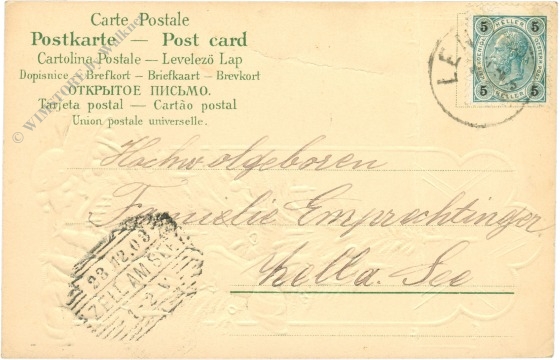 Carte Postale
Postkarte — Post card
Cartolina Postale — Levelező Lap
Dopisnice — Brefkort — Briefkaart — Brevkort
ОТКРЫТОЕ ПИСЬМО.
Tarjeta postal — Cartão postal
Union postale universelle.
5 HELLER 5
5 HELLER 5
LEN
Hochwolgeboren
Familie Emprechtinger
Zell a. See
23.12.03
ZELL AM SEE